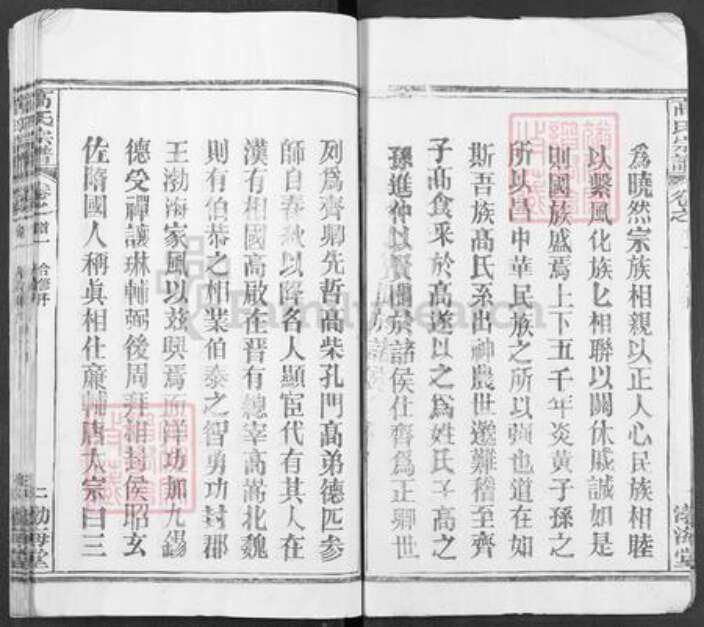 高氏宗譜
渤海堂
為曉然宗族相親以正人心民族相睦
以繫風化族必相聯以關休戚誠如是
則國族盛焉上下五千年炎黃子孫之
所以昌中華民族之所以强也道在如
斯吾族髙氏系出神農世邈難稽至齊
子髙食采於高遂以之為姓氏子高之
孫進仲以賢聞於諸侯仕齊為正卿世
列為齊卿先哲高柴孔門髙弟德匹參
師自春秋以降各人顯宦代有其人在
漢有相國高啟在晉有總宰高嵩北魏
則有伯恭之相業伯泰之智勇功封郡
王渤海家風以茲興焉而洋功加九錫
德受禪讓琳輔弼後周拜相封侯昭玄
佐隋國人稱眞相仕廉輔唐太宗曰三
高氏宗譜
卷之首
二
渤海堂
FamilySearch